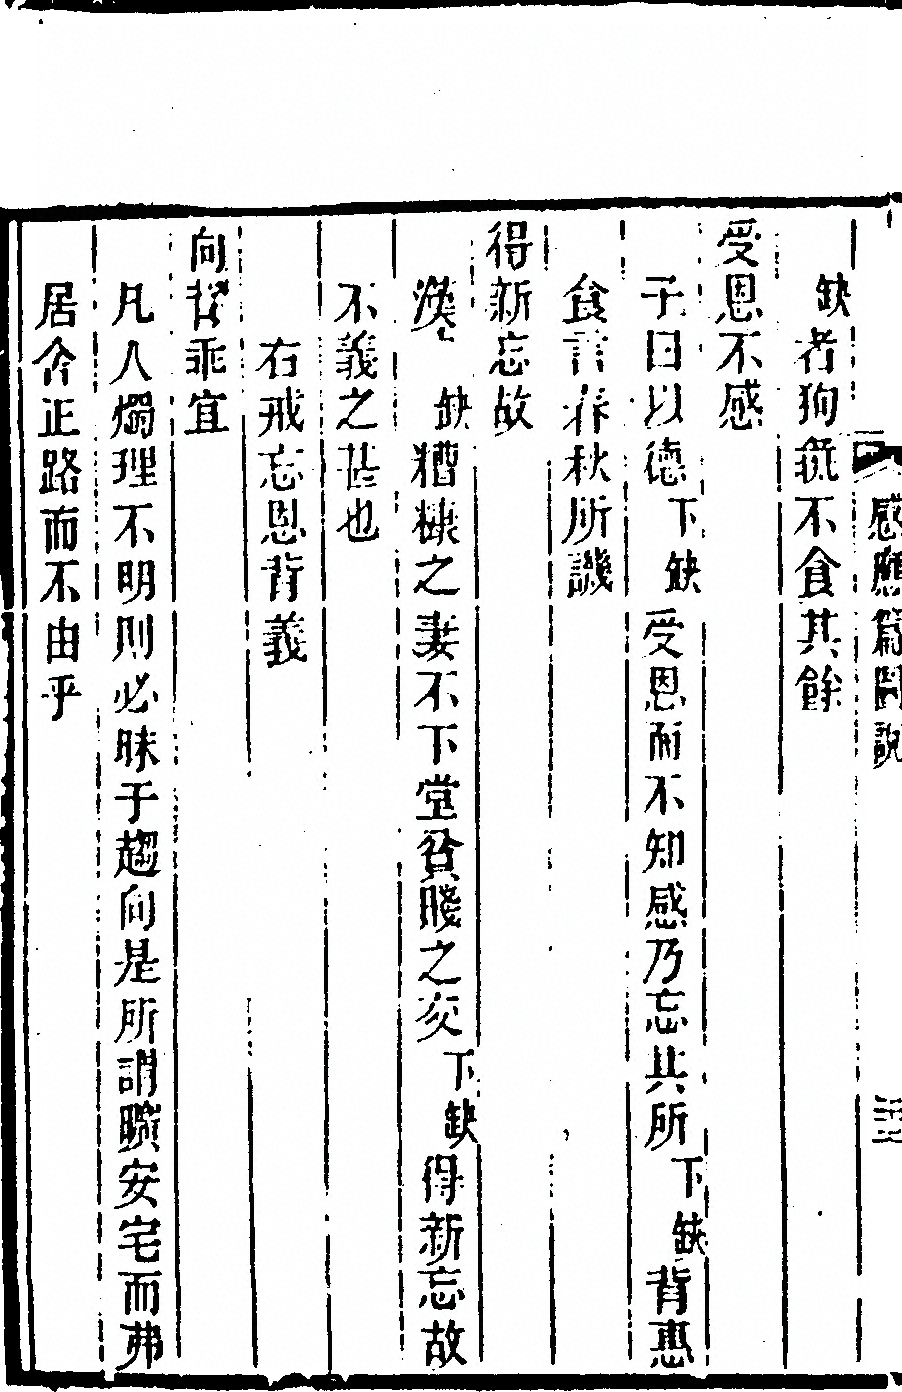 感應篇圖說
缺者狗彘不食其餘
受恩不感
子曰以德下缺受恩而不知感乃忘其所下缺背惠
食言春秋所譏
得新忘故
漢缺糟糠之妻不下堂貧賤之交下缺得新忘故
不義之甚也
右戒忘恩背義
向背乖宜
凡人燭理不明則必昧于趨向是所謂曠安宅而弗
居舍正路而不由乎